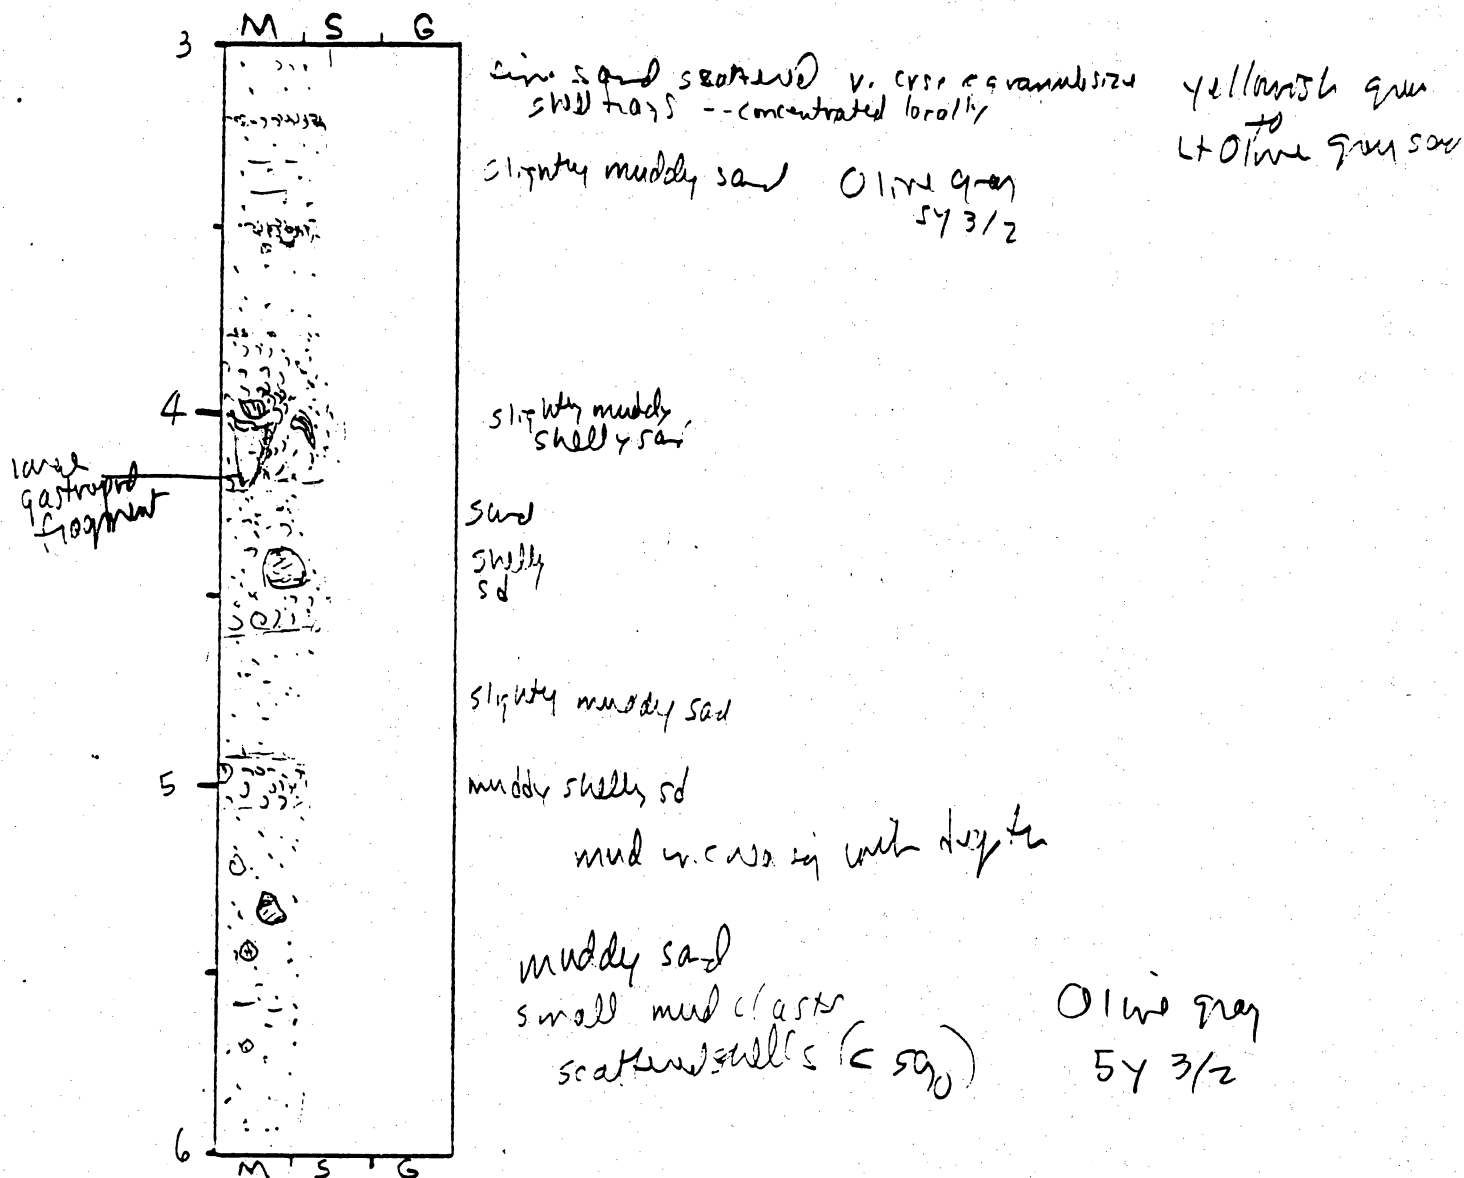 M S G
3
fine sand scattered v. crse & granule size yellowish gray
shell frags -- concentrated locally to
Lt Olive gray sand
slightly muddy sand Olive gray
5Y 3/2
4
slightly muddy
shelly san
large
gastropod
fragment
sand
shelly
sd
slighty muddy sad
5
muddy shelly sd
mud increasing with depth
muddy sand
small mud clasts Olive gray
scattered shells (< 5%) 5Y 3/2
6
M S G